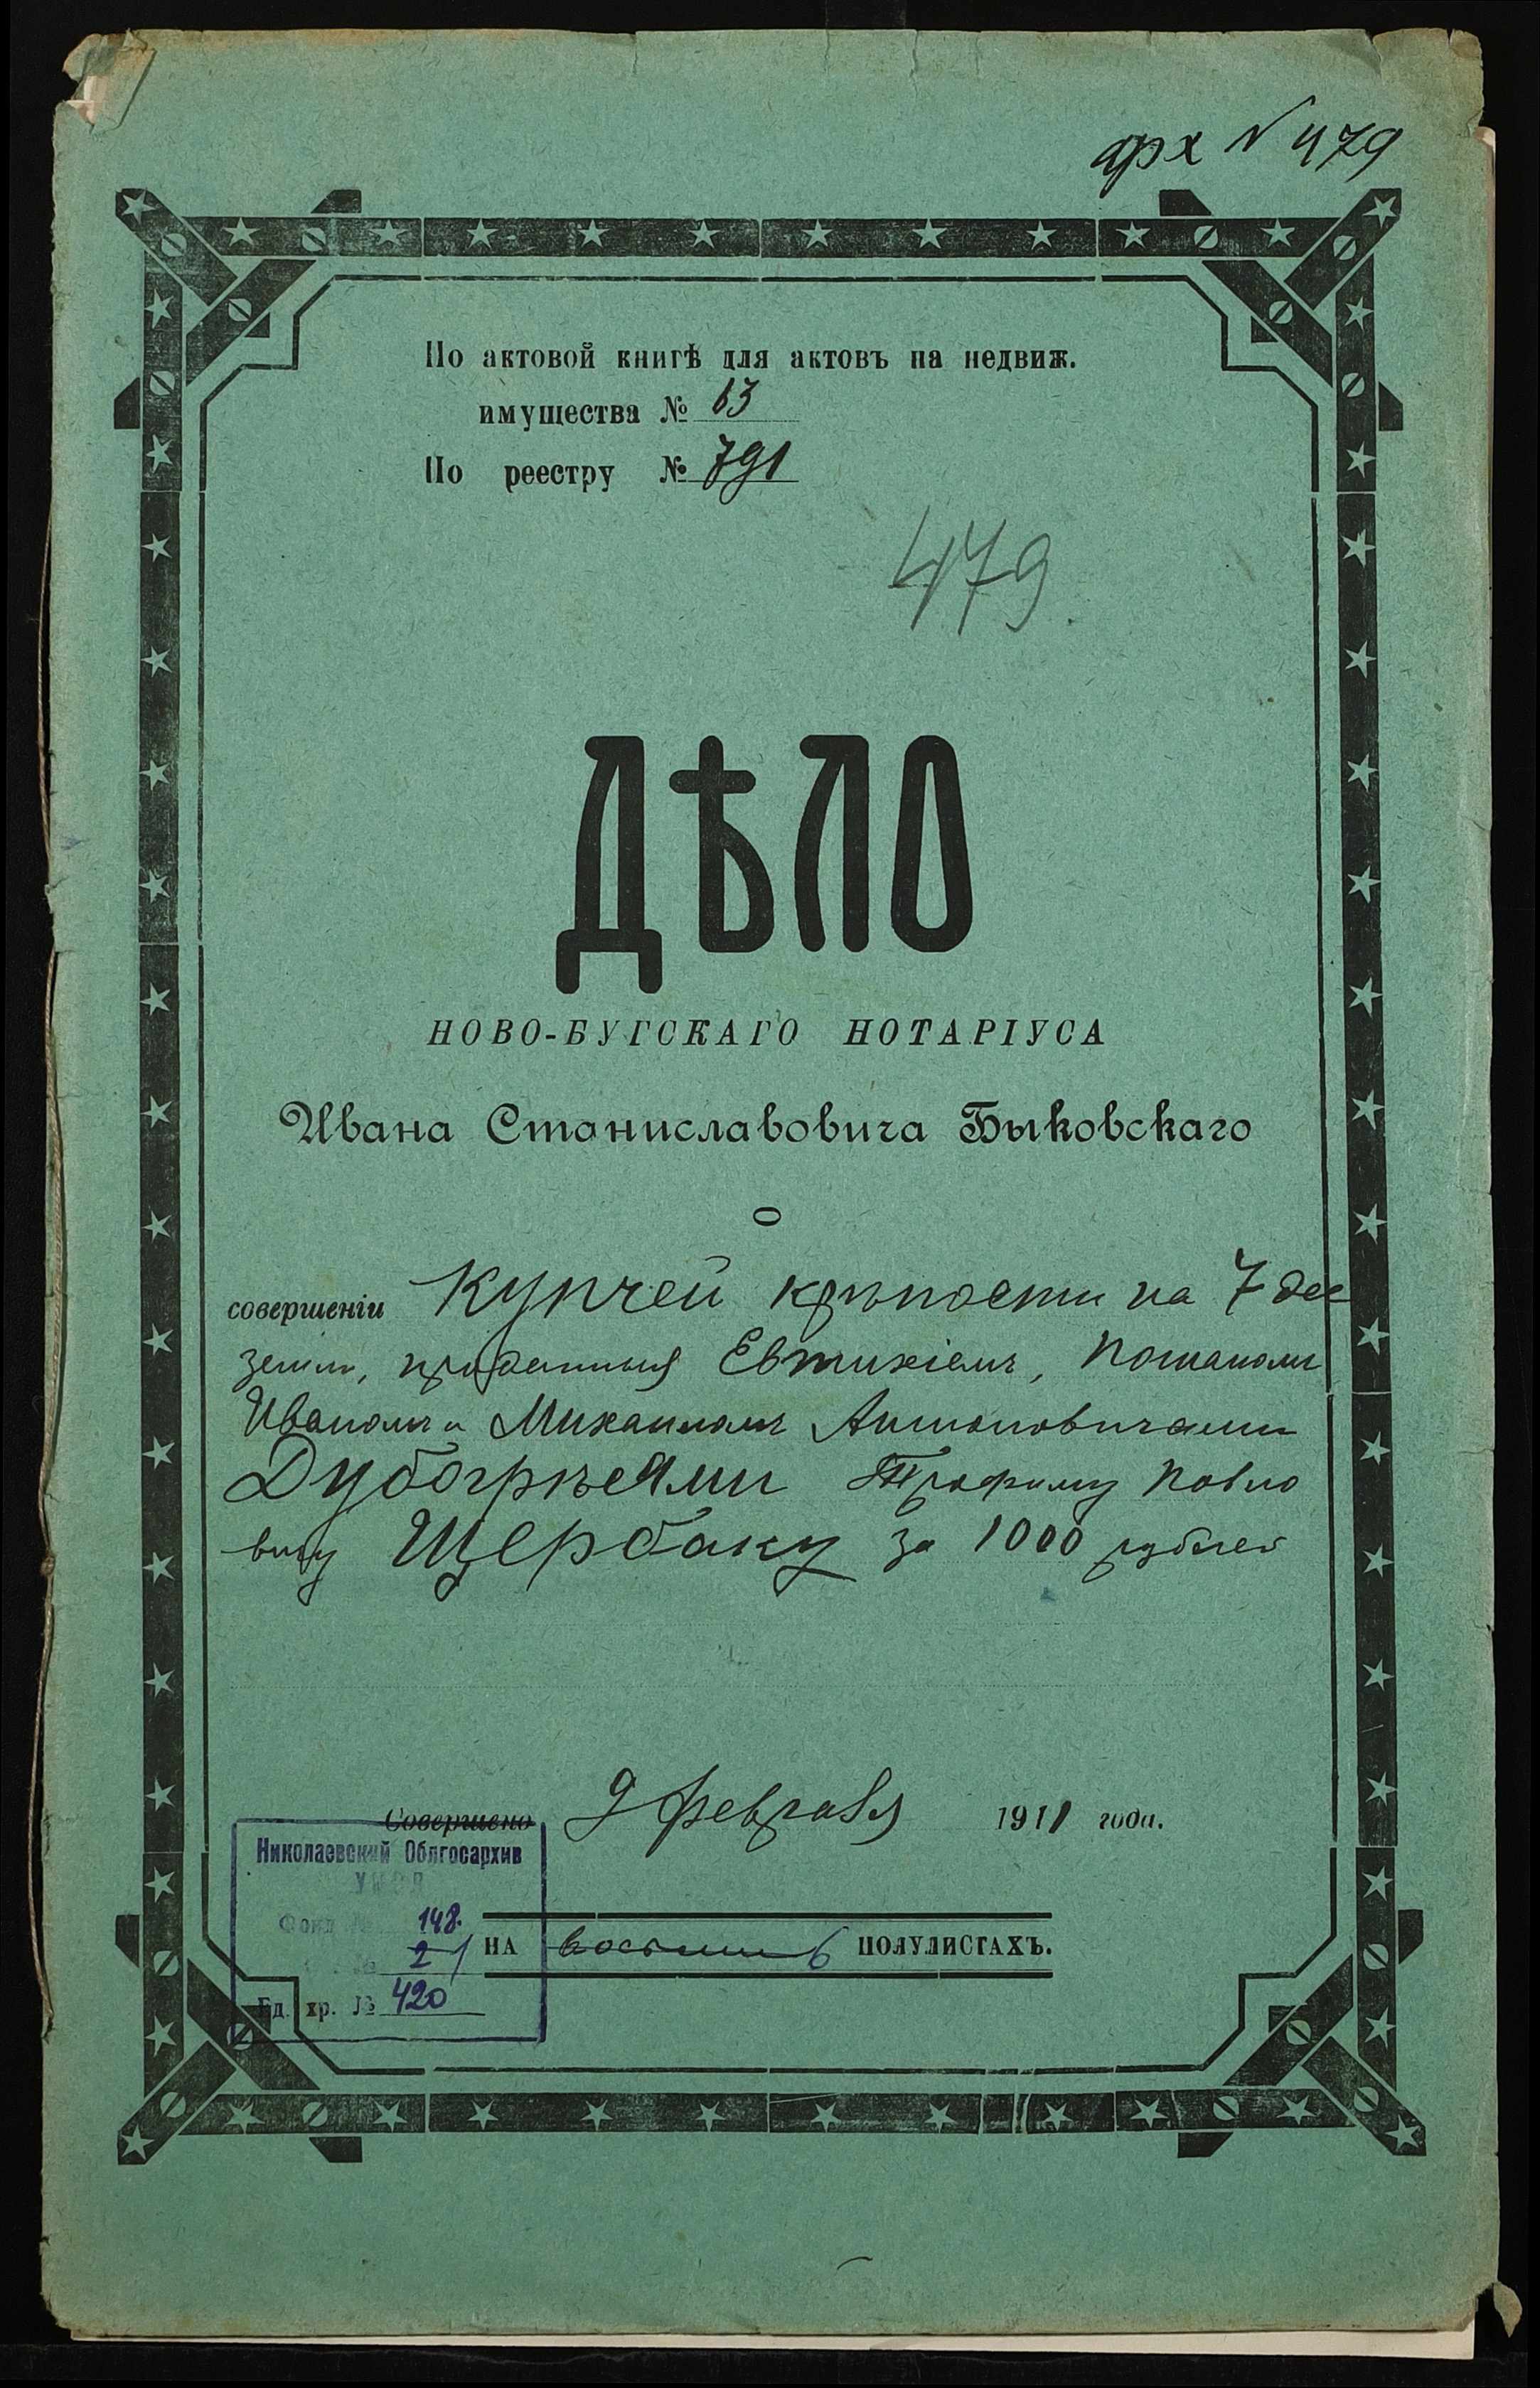 арх № 479
По актовой книгѣ для актовъ на недвиж.
имущества № 63
По реестру № 791
479
ДѢЛО
НОВО-БУГСКАГО НОТАРІУСА
Ивана Станиславовича Быковскаго
о
совершеніи Купчей крѣпости на 7 дес
земли, проданныя Евтихіемъ, Потапомъ
Иваномъ и Михаиломъ Антоновичами
Дубогрѣями Трофиму Павло
вичу Щербаку за 1000 рублей
Совершено 9 февраля 1911 года.
Николаевский Облгосархив
Фонд № 148.
№ 2 1
Ед. хр. № 420
НА восьми 6 ПОЛУЛИСТАХЪ.